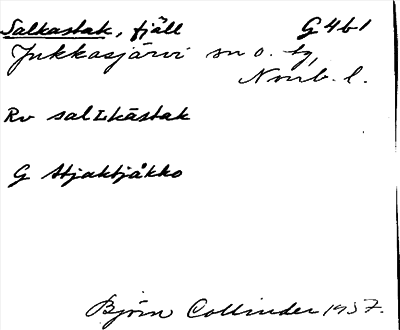 Salkastak, fjäll G4b1
Jukkasjärvi sn o. tg,
Norrb. l.
Rv salLkāstak
G Stjaktjåkko
Björn Collinder 1937.